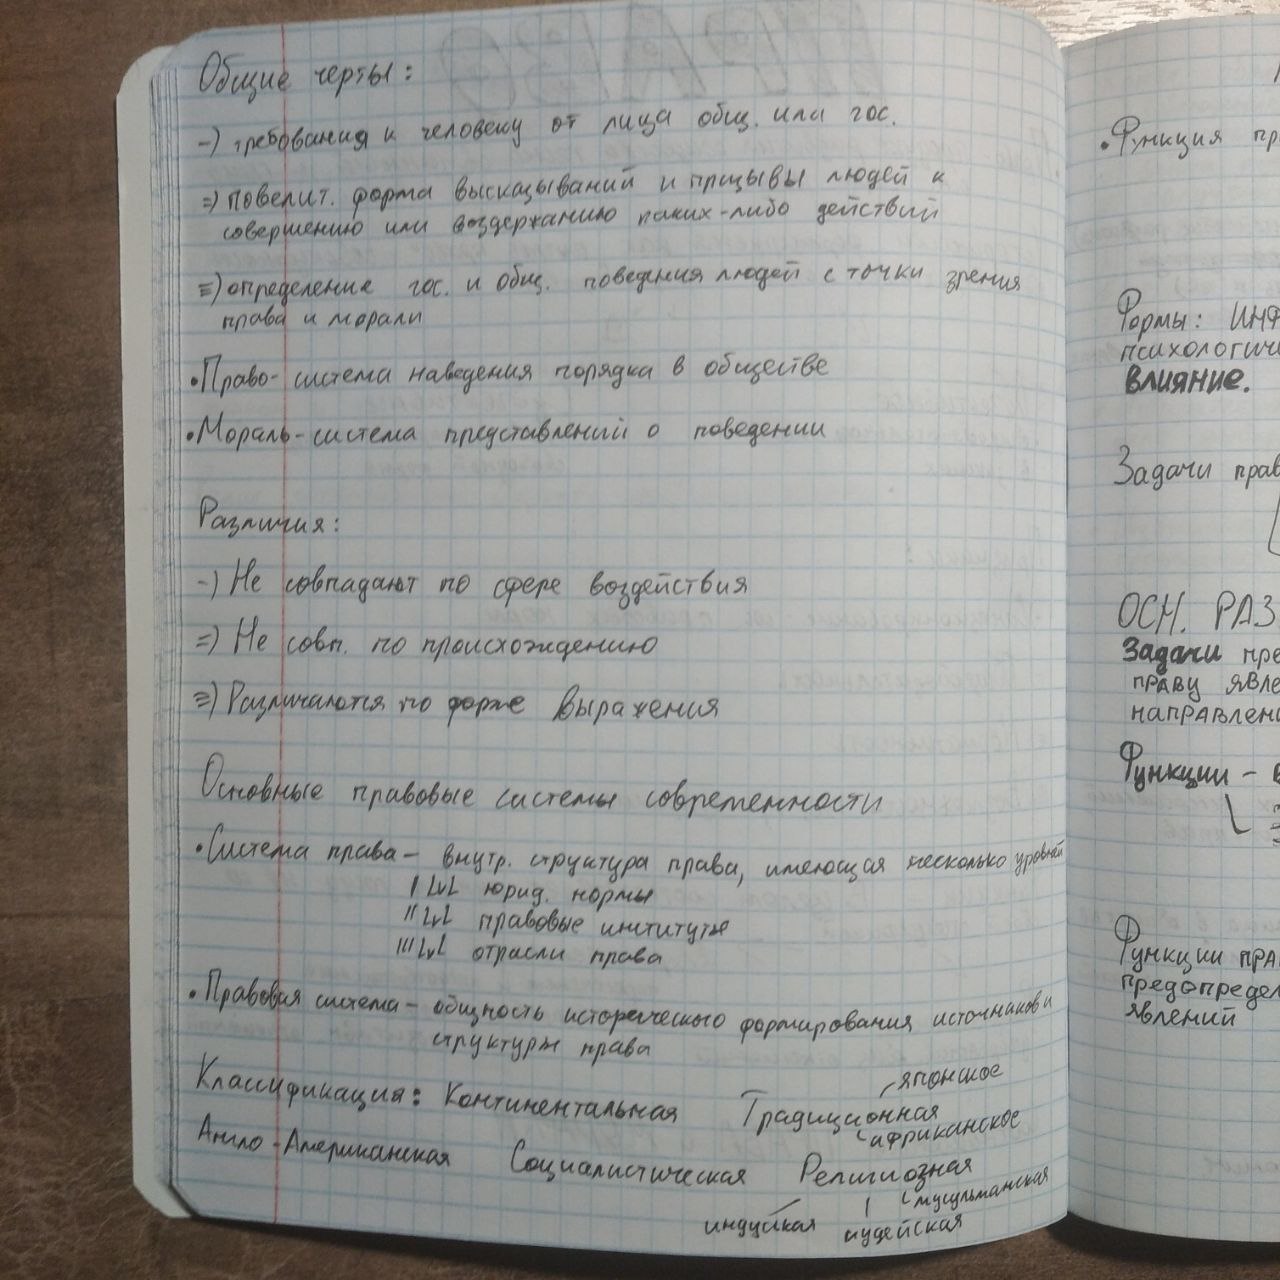 Общие черты:
-) требования к человеку от лица общ. или гос.
=) повелит. форма высказываний и прызывы людей к
совершению или воздержанию каких-либо действий
≡) определение гос. и общ. поведения людей с точки зрения
права и морали
• Право- система наведения порядка в обществе
• Мораль-система представлений о поведении
Различия:
-) Не совпадают по сфере воздействия
=) Не совп. по происхождению
≡) Различаются по форме выражения
Основные правовые системы современности
• Система права – внутр. структура права, имеющая несколько уровней
I LvL юрид. нормы
II LvL правовые институты
III LvL отрасли права
• Правовая система – общность исторического формирования источников и
структуры права
Классификация: Континентальная Традиционная
японское
африканское
Англо-Американская Социалистическая Религиозная
индуйская иудейская мусульманская
• Функция пр
Формы: ИНФ
психологиче
влияние.
Задачи прав
ОСН. РАЗ
Задачи пре
праву явле
направлени
Функции – в
Функции ПРА
предопредел
явлений